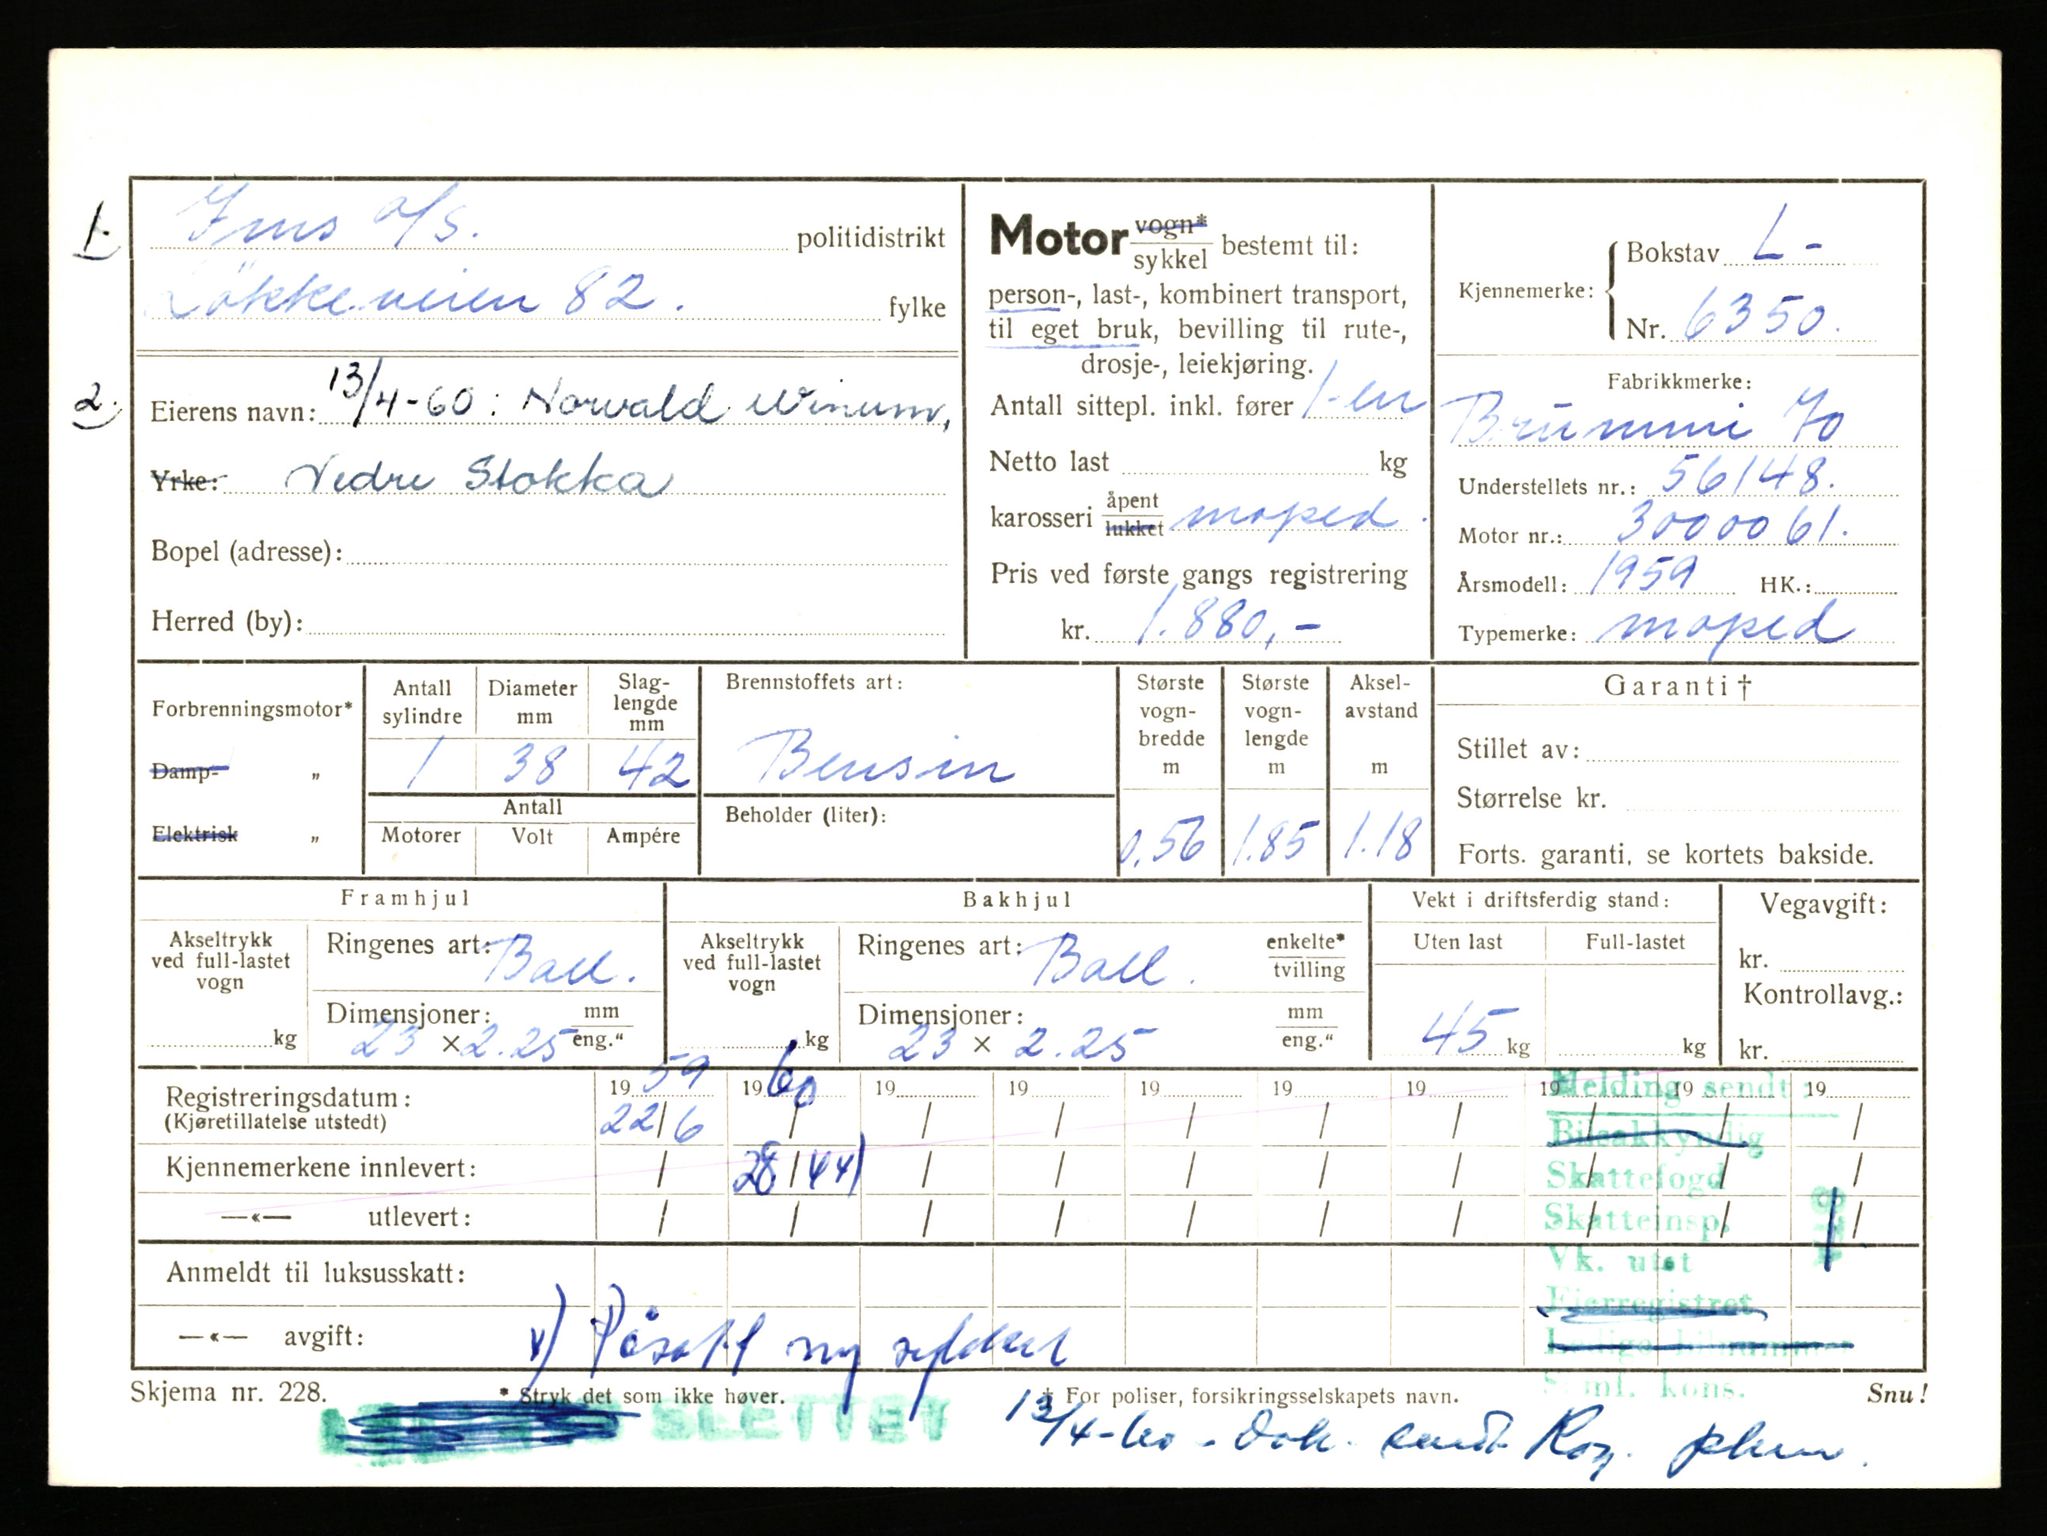 1.
Jms a/s. politidistrikt
Løkkeveien 82. fylke
2. Eierens navn: 13/4-60: Norvald
Yrke: Nedre Stokka
Bopel (adresse):
Herred (by):
Motor vogn* / sykkel bestemt til:
person-, last-, kombinert transport,
til eget bruk, bevilling til rute-,
drosje-, leiekjøring.
Antall sittepl. inkl. fører 1-en
Netto last kg
karosseri åpent / lukket moped.
Pris ved første gangs registrering
kr. 1.880,-
Kjennemerke: Bokstav L-
Nr. 6350.
Fabrikkmerke:
Brummi 70
Understellets nr.: 56148.
Motor nr.: 3000061.
Årsmodell: 1959 HK.:
Typemerke: moped
Forbrenningsmotor*
Damp- „
Elektrisk „
Antall sylindre 1
Diameter mm 38
Slag-lengde mm 42
Antall
Motorer Volt Ampére
Brennstoffets art:
Bensin
Beholder (liter):
Største vogn-bredde m 0.56
Største vogn-lengde m 1.85
Aksel-avstand m 1.18
Garanti †
Stillet av:
Størrelse kr.
Forts. garanti, se kortets bakside.
Framhjul
Akseltrykk ved full-lastet vogn kg
Ringenes art: Ball.
Dimensjoner: mm / eng."
23 x 2.25
Bakhjul
Akseltrykk ved full-lastet vogn kg
Ringenes art: Ball. enkelte* / tvilling
Dimensjoner: mm / eng."
23 x 2.25
Vekt i driftsferdig stand:
Uten last Full-lastet
45 kg kg
Vegavgift:
kr.
Kontrollavg.:
kr.
Registreringsdatum: 19 59 19 60 19 19 19 19 19 19 19 19
(Kjøretillatelse utstedt) 22/6 / / / / / / / / /
Kjennemerkene innlevert: / 28/4 / / / / / / / /
—«— utlevert: / / / / / / / / / /
Anmeldt til luksusskatt:
—«— avgift:
Påsatt ny
Melding sendt:
Bilsakkyndig
Skattefogd
Skatteinsp.
Vk. utst
Eierregistret
Saml. kons.
Skjema nr. 228. * Stryk det som ikke høver. † For poliser, forsikringsselskapets navn. Snu!
SLETTET
13/4-60 - Dok. sendt Rog.